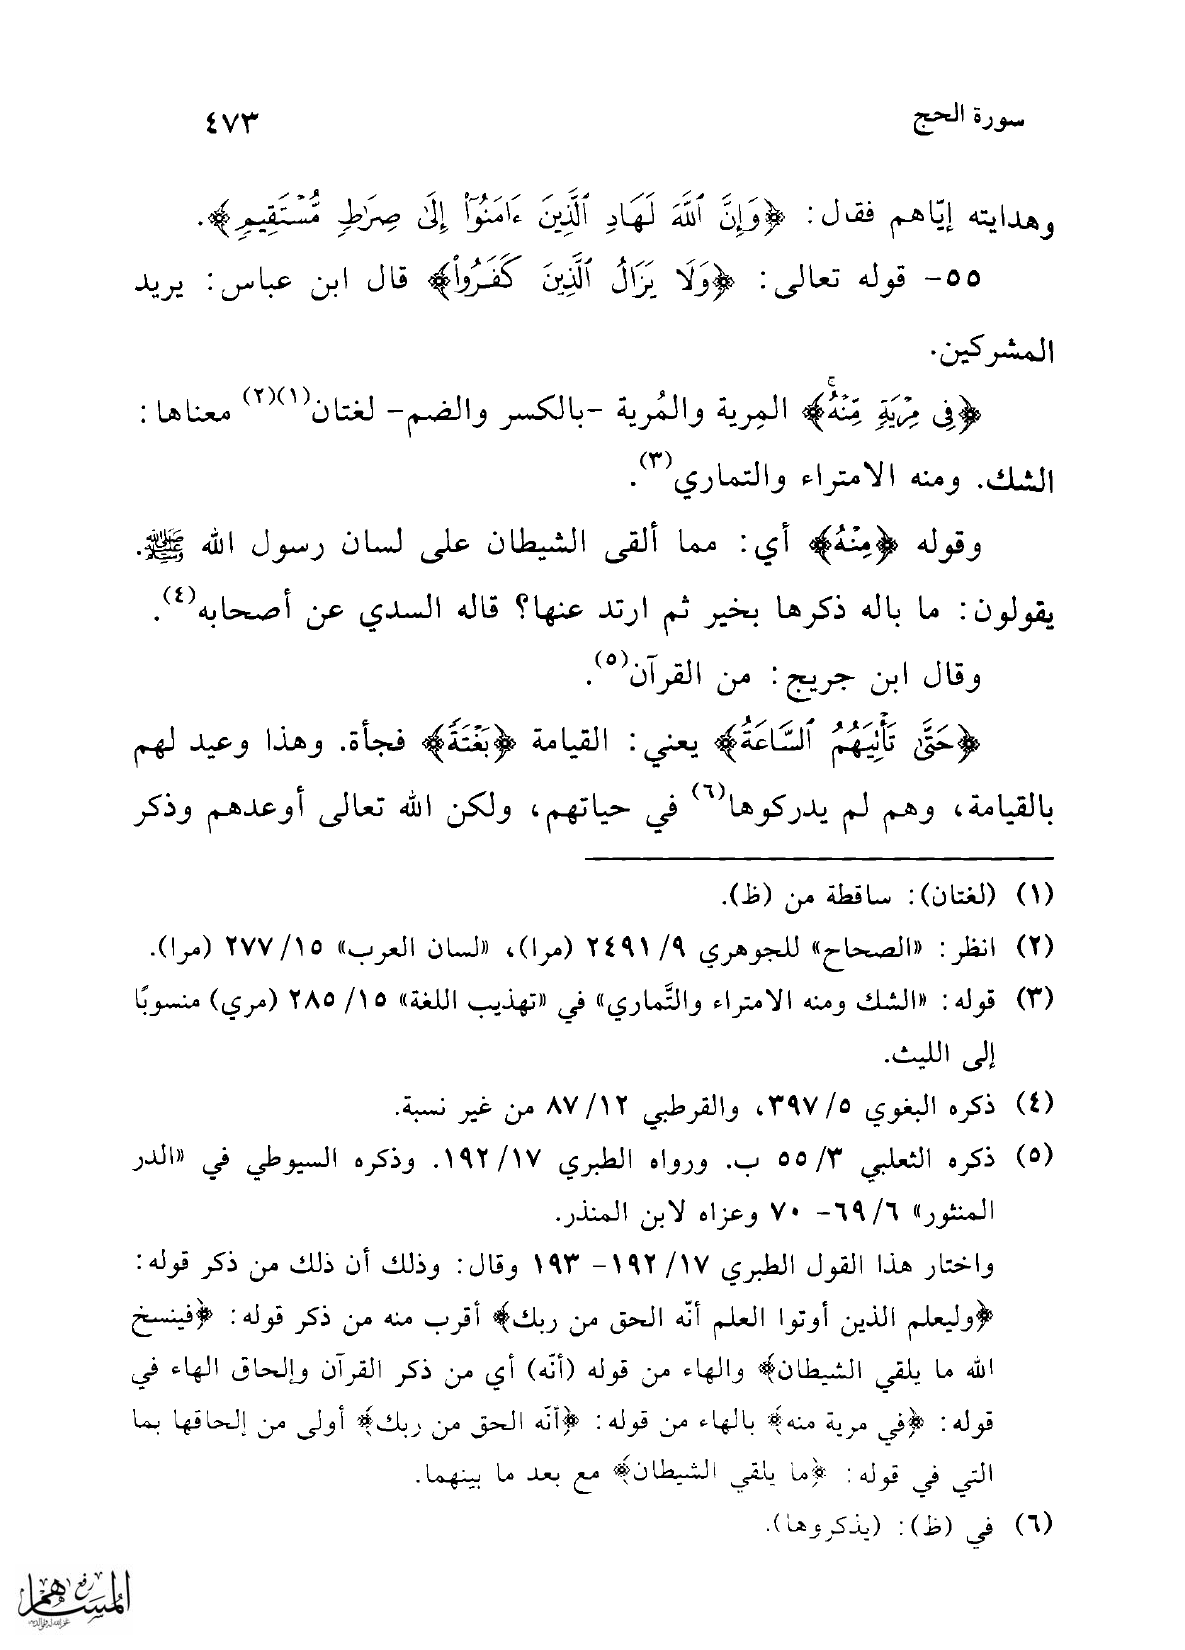 سورة الحج ٤٧٣
وهدايته إيّاهم فقال: ﴿وَإِنَّ ٱللَّهَ لَهَادِ ٱلَّذِينَ ءَامَنُوٓاْ إِلَىٰ صِرَٰطٍ مُّسْتَقِيمٍ﴾.
٥٥- قوله تعالى: ﴿وَلَا يَزَالُ ٱلَّذِينَ كَفَرُواْ﴾ قال ابن عباس: يريد
المشركين.
﴿فِى مِرْيَةٍ مِّنْهُ﴾ المِرية والمُرية -بالكسر والضم- لغتان(١)(٢) معناها:
الشك. ومنه الامتراء والتماري(٣).
وقوله ﴿مِنْهُ﴾ أي: مما ألقى الشيطان على لسان رسول الله ﷺ.
يقولون: ما باله ذكرها بخير ثم ارتد عنها؟ قاله السدي عن أصحابه(٤).
وقال ابن جريج: من القرآن(٥).
﴿حَتَّىٰ تَأْتِيَهُمُ ٱلسَّاعَةُ﴾ يعني: القيامة ﴿بَغْتَةً﴾ فجأة. وهذا وعيد لهم
بالقيامة، وهم لم يدركوها(٦) في حياتهم، ولكن الله تعالى أوعدهم وذكر
(١) (لغتان): ساقطة من (ظ).
(٢) انظر: «الصحاح» للجوهري ٩/ ٢٤٩١ (مرا)، «لسان العرب» ١٥/ ٢٧٧ (مرا).
(٣) قوله: «الشك ومنه الامتراء والتَّماري» في «تهذيب اللغة» ١٥/ ٢٨٥ (مري) منسوبًا
إلى الليث.
(٤) ذكره البغوي ٥/ ٣٩٧، والقرطبي ١٢/ ٨٧ من غير نسبة.
(٥) ذكره الثعلبي ٣/ ٥٥ ب. ورواه الطبري ١٧/ ١٩٢. وذكره السيوطي في «الدر
المنثور» ٦/ ٦٩- ٧٠ وعزاه لابن المنذر.
واختار هذا القول الطبري ١٧/ ١٩٢- ١٩٣ وقال: وذلك أن ذلك من ذكر قوله:
﴿وليعلم الذين أوتوا العلم أنّه الحق من ربك﴾ أقرب منه من ذكر قوله: ﴿فينسخ
الله ما يلقي الشيطان﴾ والهاء من قوله (أنّه) أي من ذكر القرآن وإلحاق الهاء في
قوله: ﴿في مرية منه﴾ بالهاء من قوله: ﴿أنّه الحق من ربك﴾ أولى من إلحاقها بما
التي في قوله: ﴿ما يلقي الشيطان﴾ مع بعد ما بينهما.
(٦) في (ظ): (يذكروها).